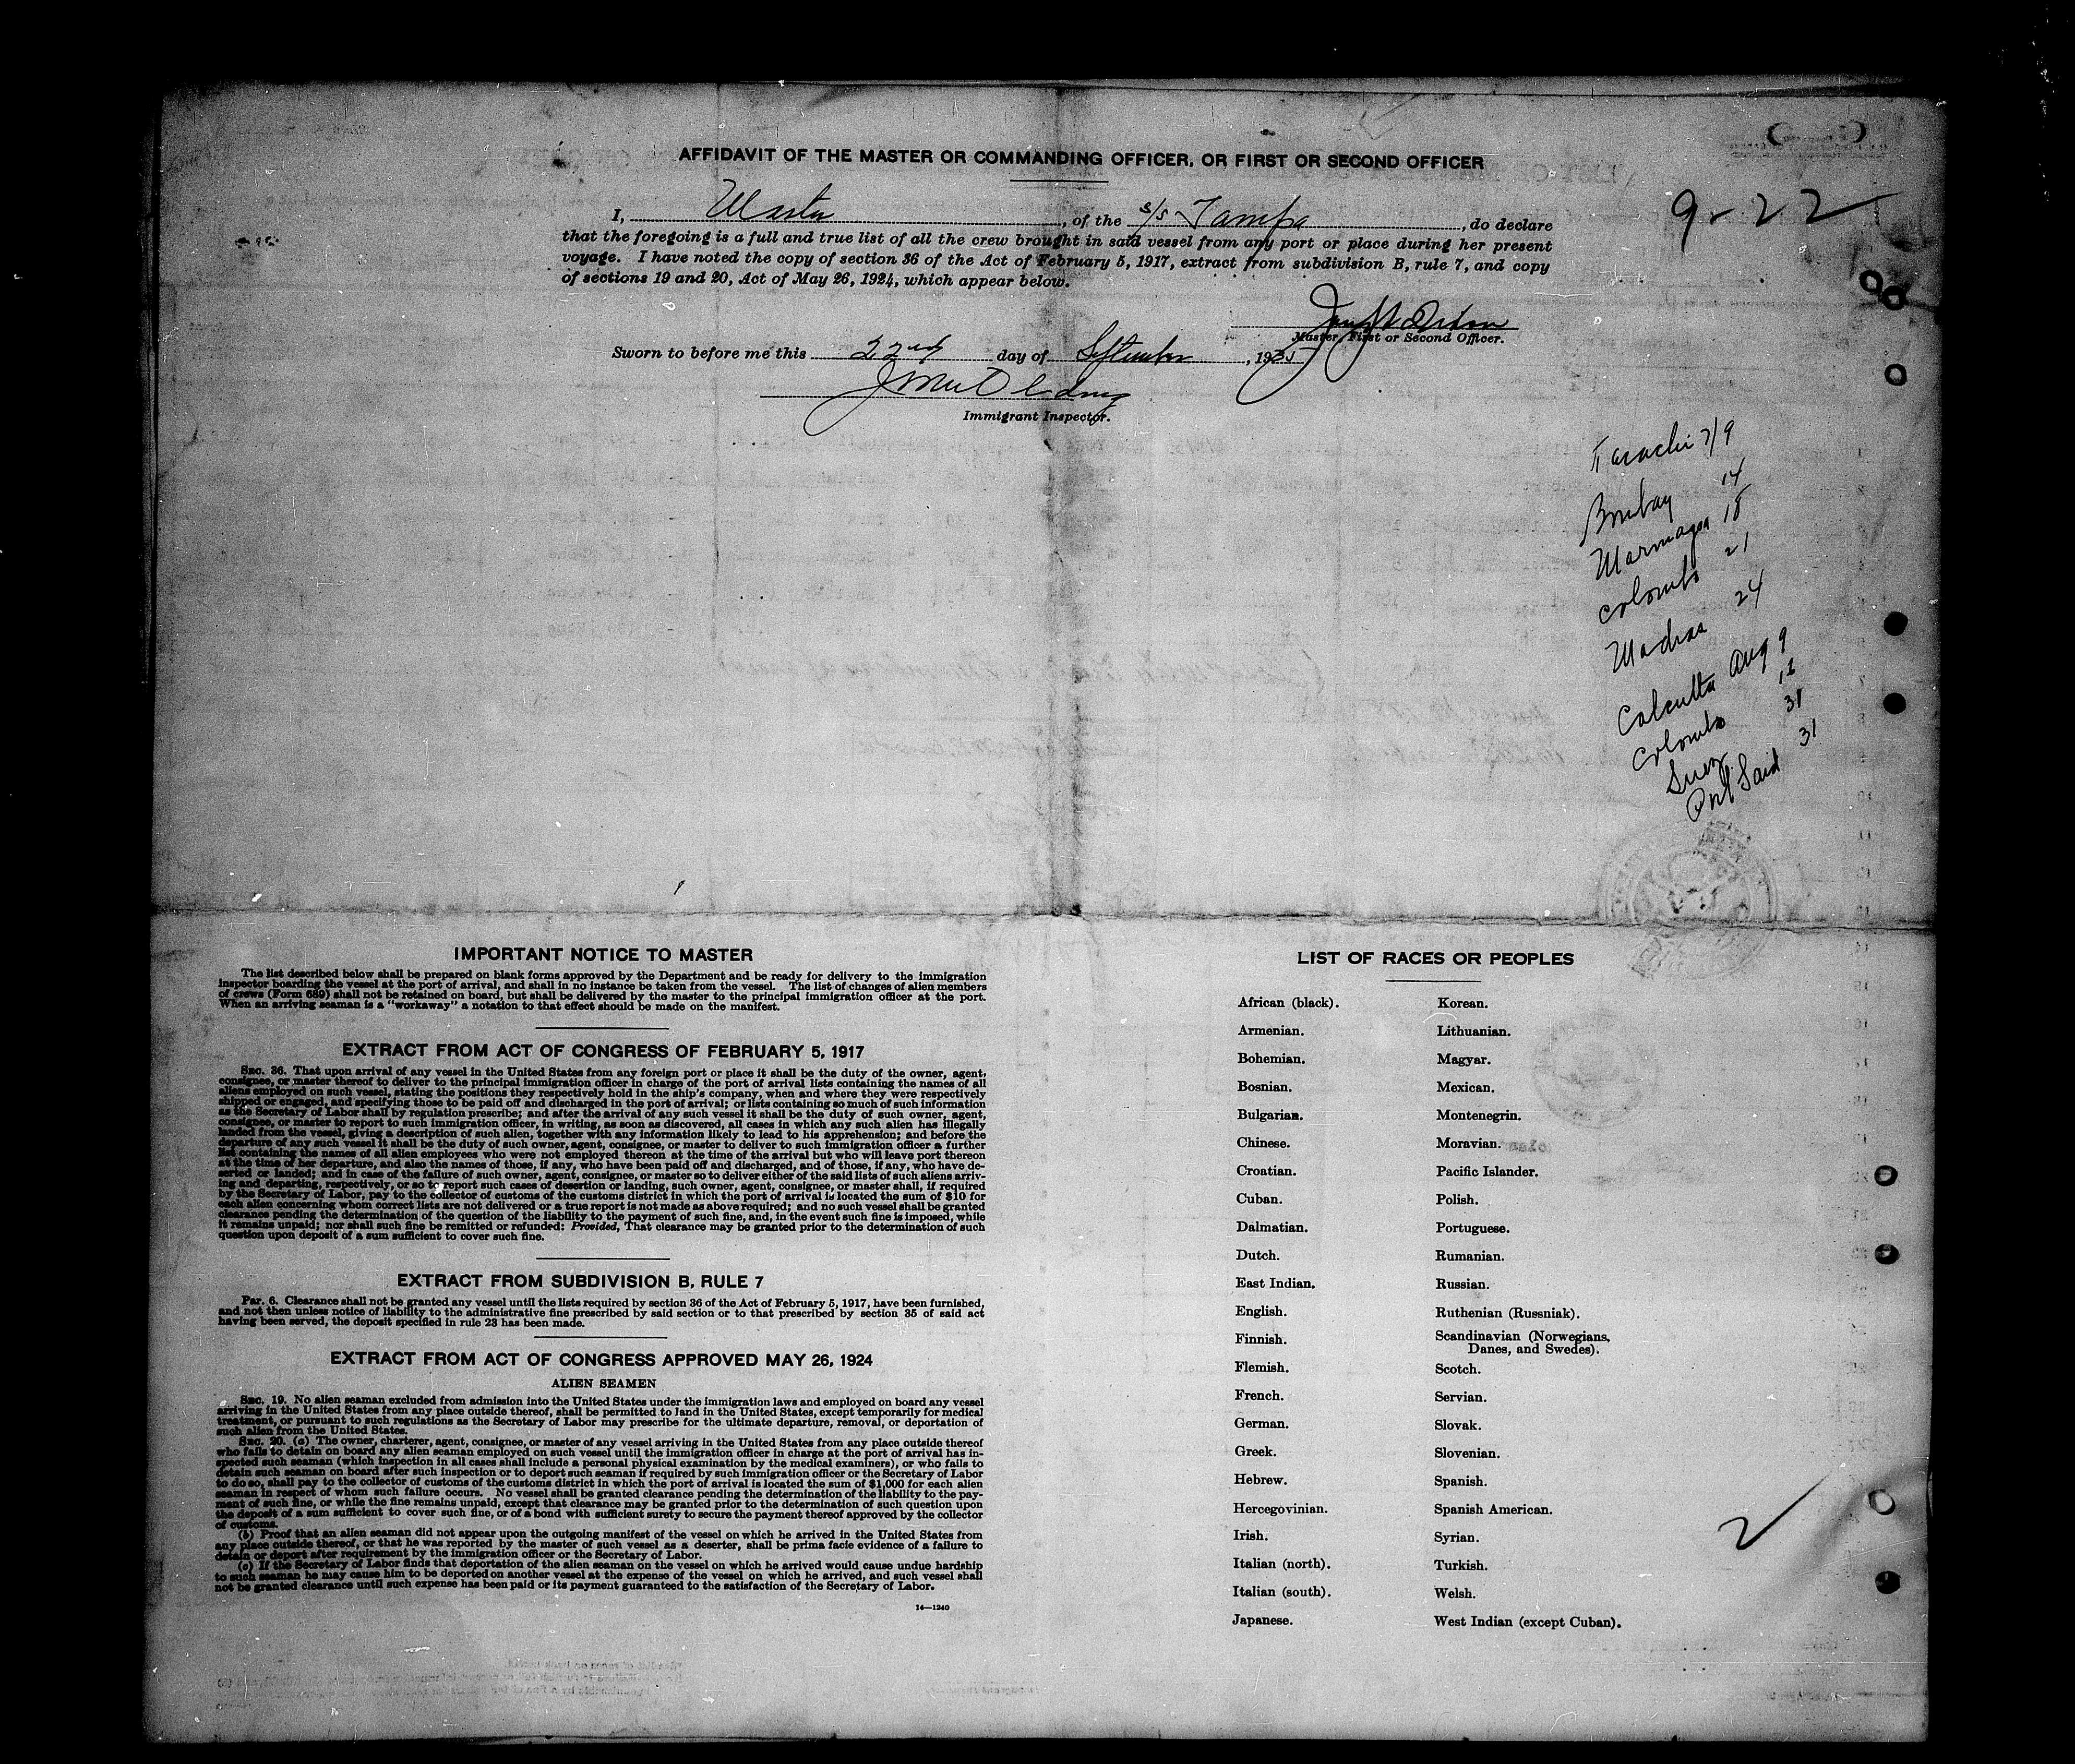 AFFIDAVIT OF THE MASTER OR COMMANDING OFFICER, OR FIRST OR SECOND OFFICER
I, Master, of the s/s Tampa, do declare
that the foregoing is a full and true list of all the crew brought in said vessel from any port or place during her present
voyage. I have noted the copy of section 36 of the Act of February 5, 1917, extract from subdivision B, rule 7, and copy
of sections 19 and 20, Act of May 26, 1924, which appear below.
9-22
Master, First or Second Officer.
Sworn to before me this 22nd day of September, 1935
Immigrant Inspector.
Karachi 7/9
Bombay 14
Marmagoa 18
Colombo 21
Madras 24
Calcutta Aug 9
Colombo
Suez 31
Port Said 31
IMPORTANT NOTICE TO MASTER
The list described below shall be prepared on blank forms approved by the Department and be ready for delivery to the immigration
inspector boarding the vessel at the port of arrival, and shall in no instance be taken from the vessel. The list of changes of alien members
of crews (Form 689) shall not be retained on board, but shall be delivered by the master to the principal immigration officer at the port.
When an arriving seaman is a "workaway" a notation to that effect should be made on the manifest.
EXTRACT FROM ACT OF CONGRESS OF FEBRUARY 5, 1917
SEC. 36. That upon arrival of any vessel in the United States from any foreign port or place it shall be the duty of the owner, agent,
consignee, or master thereof to deliver to the principal immigration officer in charge of the port of arrival lists containing the names of all
aliens employed on such vessel, stating the positions they respectively hold in the ship's company, when and where they were respectively
shipped or engaged, and specifying those to be paid off and discharged in the port of arrival; or lists containing so much of such information
as the Secretary of Labor shall by regulation prescribe; and after the arrival of any such vessel it shall be the duty of such owner, agent,
consignee, or master to report to such immigration officer, in writing, as soon as discovered, all cases in which any such alien has illegally
landed from the vessel, giving a description of such alien, together with any information likely to lead to his apprehension; and before the
departure of any such vessel it shall be the duty of such owner, agent, consignee, or master to deliver to such immigration officer a further
list containing the names of all alien employees who were not employed thereon at the time of the arrival but who will leave port thereon
at the time of her departure, and also the names of those, if any, who have been paid off and discharged, and of those, if any, who have de-
serted or landed; and in case of the failure of such owner, agent, consignee, or master so to deliver either of the said lists of such aliens arriv-
ing and departing, respectively, or so to report such cases of desertion or landing, such owner, agent, consignee, or master shall, if required
by the Secretary of Labor, pay to the collector of customs of the customs district in which the port of arrival is located the sum of $10 for
each alien concerning whom correct lists are not delivered or a true report is not made as above required; and no such vessel shall be granted
clearance pending the determination of the question of the liability to the payment of such fine, and, in the event such fine is imposed, while
it remains unpaid; nor shall such fine be remitted or refunded: Provided, That clearance may be granted prior to the determination of such
question upon deposit of a sum sufficient to cover such fine.
EXTRACT FROM SUBDIVISION B, RULE 7
PAR. 6. Clearance shall not be granted any vessel until the lists required by section 36 of the Act of February 5, 1917, have been furnished,
and not then unless notice of liability to the administrative fine prescribed by said section or to that prescribed by section 35 of said act
having been served, the deposit specified in rule 23 has been made.
EXTRACT FROM ACT OF CONGRESS APPROVED MAY 26, 1924
ALIEN SEAMEN
SEC. 19. No alien seaman excluded from admission into the United States under the immigration laws and employed on board any vessel
arriving in the United States from any place outside thereof, shall be permitted to land in the United States, except temporarily for medical
treatment, or pursuant to such regulations as the Secretary of Labor may prescribe for the ultimate departure, removal, or deportation of
such alien from the United States.
SEC. 20. (a) The owner, charterer, agent, consignee, or master of any vessel arriving in the United States from any place outside thereof
who fails to detain on board any alien seaman employed on such vessel until the immigration officer in charge at the port of arrival has in-
spected such seaman (which inspection in all cases shall include a personal physical examination by the medical examiners), or who fails to
detain such seaman on board after such inspection or to deport such seaman if required by such immigration officer or the Secretary of Labor
to do so, shall pay to the collector of customs of the customs district in which the port of arrival is located the sum of $1,000 for each alien
seaman in respect of whom such failure occurs. No vessel shall be granted clearance pending the determination of the liability to the pay-
ment of such fine, or while the fine remains unpaid, except that clearance may be granted prior to the determination of such question upon
the deposit of a sum sufficient to cover such fine, or of a bond with sufficient surety to secure the payment thereof approved by the collector
of customs.
(b) Proof that an alien seaman did not appear upon the outgoing manifest of the vessel on which he arrived in the United States from
any place outside thereof, or that he was reported by the master of such vessel as a deserter, shall be prima facie evidence of a failure to
detain or deport after requirement by the immigration officer or the Secretary of Labor.
(c) If the Secretary of Labor finds that deportation of the alien seaman on the vessel on which he arrived would cause undue hardship
to such seaman he may cause him to be deported on another vessel at the expense of the vessel on which he arrived, and such vessel shall
not be granted clearance until such expense has been paid or its payment guaranteed to the satisfaction of the Secretary of Labor.
14—1240
LIST OF RACES OR PEOPLES
African (black).
Armenian.
Bohemian.
Bosnian.
Bulgarian.
Chinese.
Croatian.
Cuban.
Dalmatian.
Dutch.
East Indian.
English.
Finnish.
Flemish.
French.
German.
Greek.
Hebrew.
Hercegovinian.
Irish.
Italian (north).
Italian (south).
Japanese.
Korean.
Lithuanian.
Magyar.
Mexican.
Montenegrin.
Moravian.
Pacific Islander.
Polish.
Portuguese.
Rumanian.
Russian.
Ruthenian (Russniak).
Scandinavian (Norwegians,
Danes, and Swedes).
Scotch.
Servian.
Slovak.
Slovenian.
Spanish.
Spanish American.
Syrian.
Turkish.
Welsh.
West Indian (except Cuban).
2